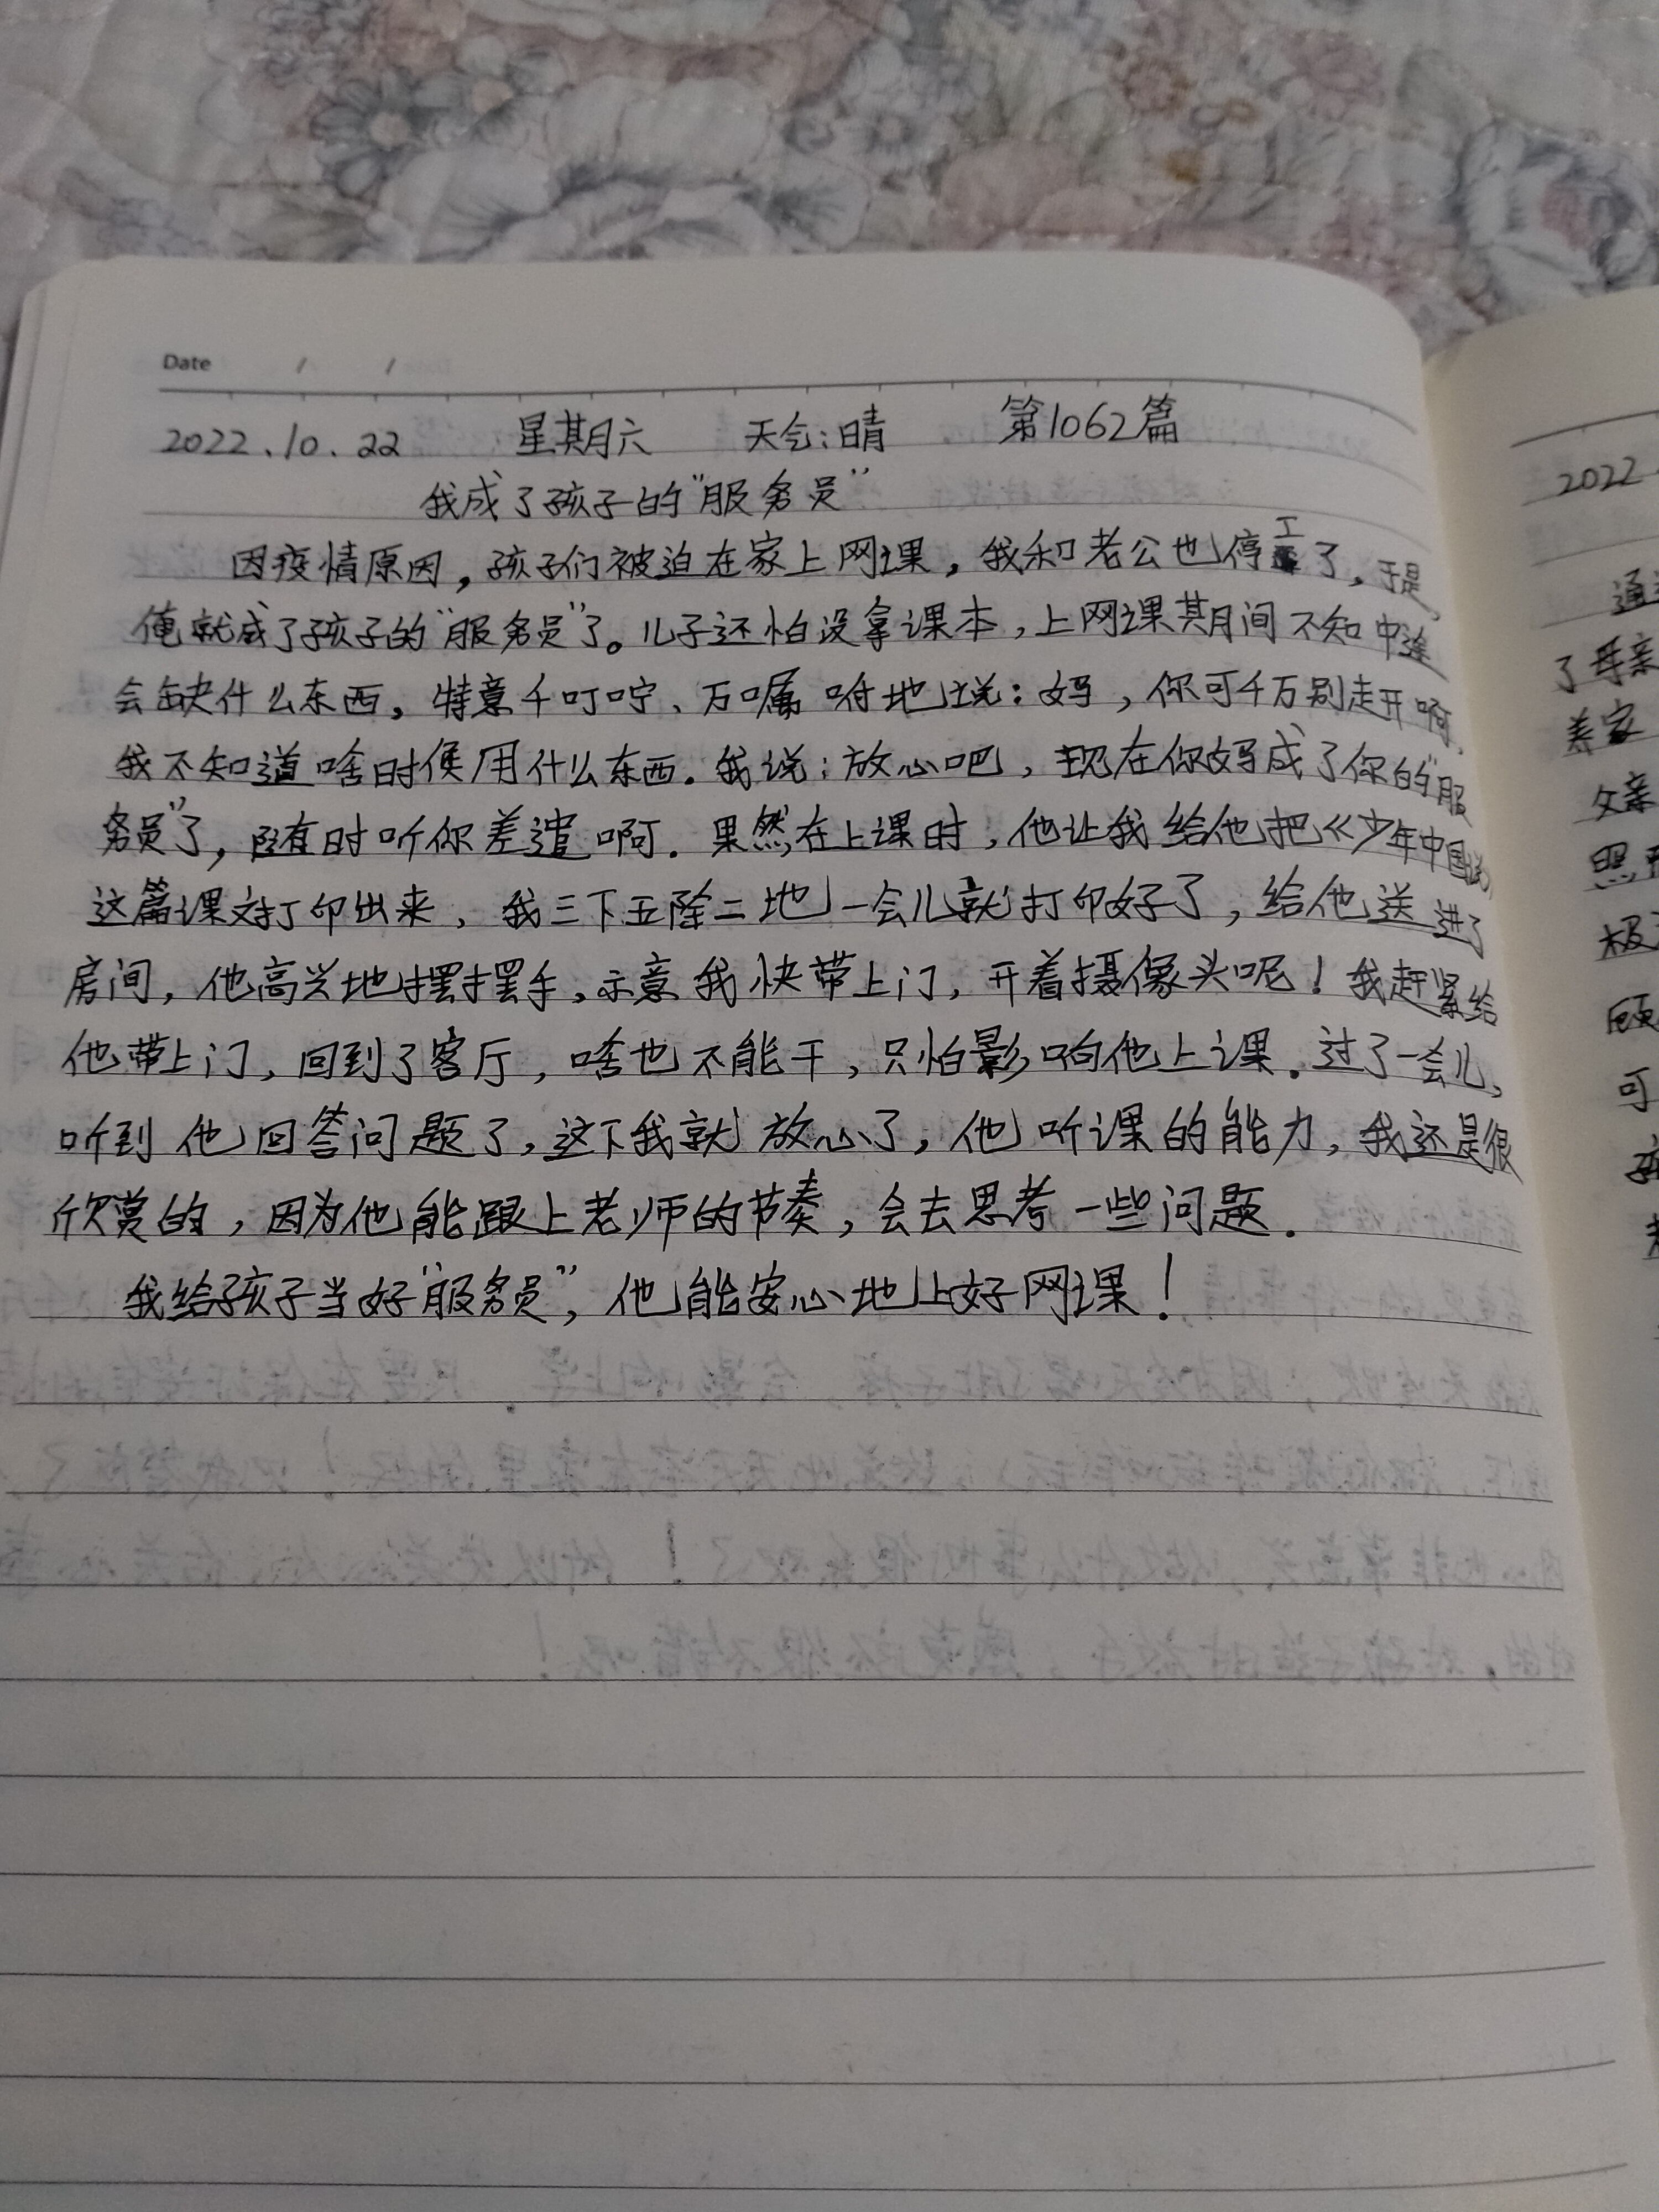 Date / /
2022.10.22 星期六 天气:晴 第1062篇
我成了孩子的"服务员"
因疫情原因,孩子们被迫在家上网课,我和老公也停工了,于是,
俺就成了孩子的"服务员"了。儿子还怕没拿课本,上网课期间不知中途
会缺什么东西,特意千叮咛、万嘱咐地说:妈,你可千万别走开啊,
我不知道啥时候用什么东西.我说:放心吧,现在你妈成了你的"服
务员"了,随时听你差遣啊.果然在上课时,他让我给他把《少年中国说》
这篇课文打印出来,我三下五除二地一会儿就打印好了,给他送进了
房间,他高兴地摆摆手,示意我快带上门,开着摄像头呢!我赶紧给
他带上门,回到了客厅,啥也不能干,只怕影响他上课.过了一会儿,
听到他回答问题了,这下我就放心了,他听课的能力,我还是很
欣赏的,因为他能跟上老师的节奏,会去思考一些问题.
我给孩子当好"服务员",他能安心地上好网课!
2022
通
了母亲
养家
父亲
照
极
顾
可